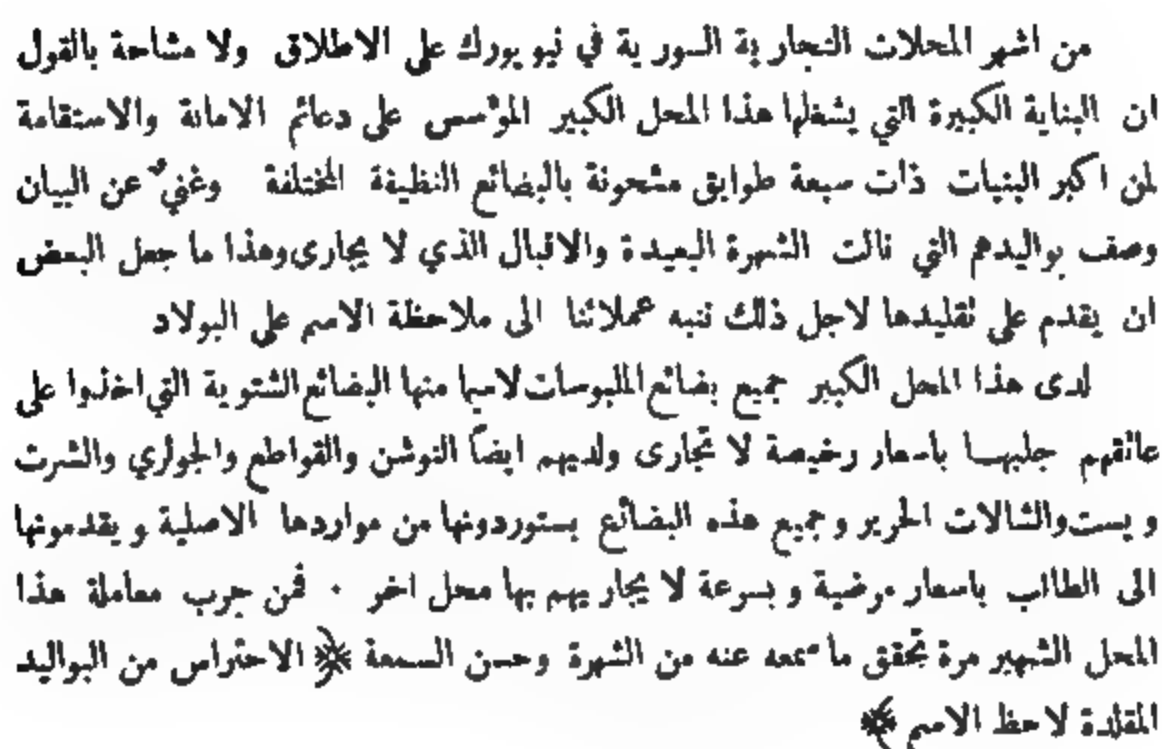 من اشهر المحلات التجارية السورية في نيو يورك على الاطلاق ولا مشاحة بالقول
ان البناية الكبيرة التي يشغلها هذا المحل الكبير المؤسس على دعائم الامانة والاستقامة
لمن اكبر البنيات ذات سبعة طوابق مشحونة بالبضائع النظيفة المختلفة وغنيٌ عن البيان
وصف بواليدهم التي نالت الشهرة البعيدة والاقبال الذي لا يجارى وهذا ما جعل البعض
ان يقدم على تقليدها لاجل ذلك ننبه عملائنا الى ملاحظة الاسم على البولاد
لدى هذا المحل الكبير جميع بضائع الملبوسات لاسيما منها البضائع الشتوية التي اخذوا على
عاتقهم جلبها باسعار رخيصة لا تجارى ولديهم ايضاً النوشن والقواطع والجولري والشرت
ويست والشالات الحرير وجميع هذه البضائع يستوردونها من مواردها الاصلية ويقدمونها
الى الطالب باسعار مرضية وبسرعة لا يجاريهم بها محل اخر · فمن جرب معاملة هذا
المحل الشهير مرة تحقق ما سمعه عنه من الشهرة وحسن السمعة ﴿ الاحتراس من البواليد
المقلدة لاحظ الاسم ﴾